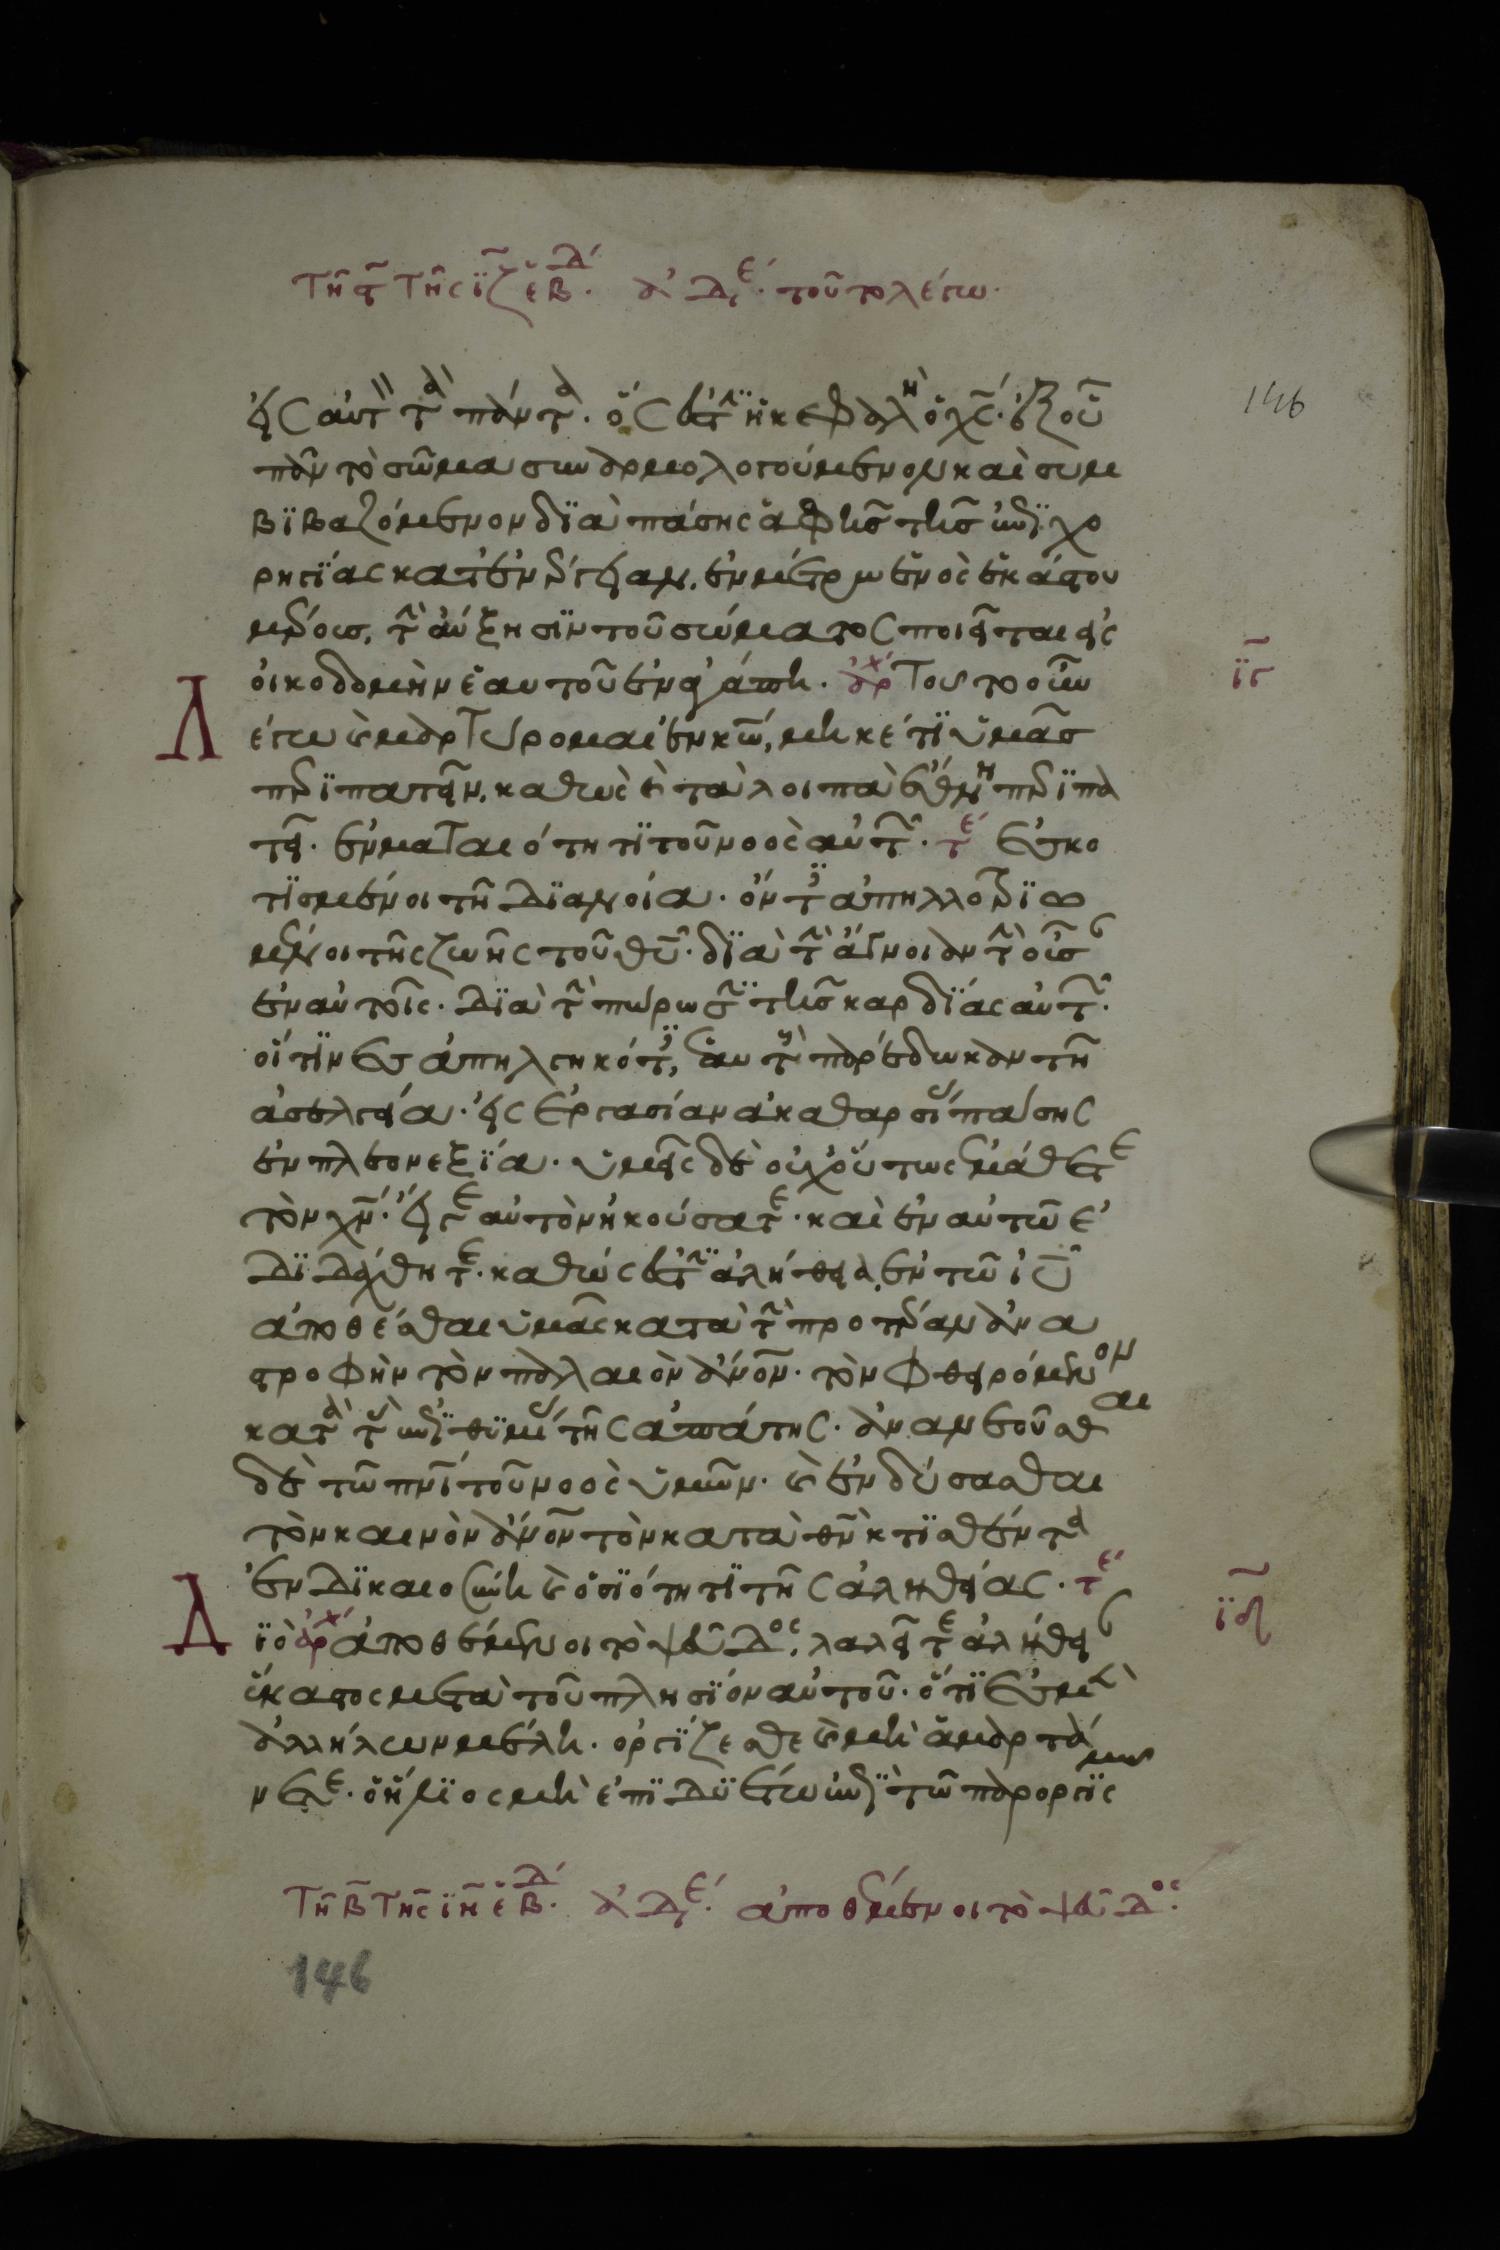 Τῆ ϛ̄ Τῆς ϊζ ἑβδ. ἀδε. τοῦτο λέγω.
εἰς αὐτὸν τὰ πάντα. ὅς ἐστϊν ἡ κεφαλὴ ὁ χ̅ς. ἐξ οὗ
πᾶν τὸ σῶμα συναρμολογούμενον καὶ συμ
βϊβαζόμενον δϊὰ πάσης ἁφῆς τῆς ἐπϊχο
ρηγϊάς κατ ἐνέργειαν. ἐν μέτρω ἑνὸς ἑκάστου
μέρους, τὴν ἀύξησϊν τοῦ σώματος ποιεῖται εἰς
οἰκοδομὴν ἑαυτοῦ ἐν ἀγάπη. ἀρχ Τοῦτο οὖν
λέγω καὶ μαρτύρομαι ἐν κ̅ω, μηκέτϊ ὑμᾶς
περϊπατεῖν, καθὼς καὶ τὰ λοιπὰ ἔθνη περϊπα
τεῖ. ἐν ματαιότητϊ τοῦ νοὸς αὐτῶν. τε ἐσκο
τϊσμένοι τῆ δϊανοία. ὄντες ἀπηλλοτρϊω
μένοι τῆς ζωῆς τοῦ θ̅υ. δϊὰ τὴν ἄγνοιαν τὴν οὖσαν
ἐν αὐτοῖς. δϊὰ τὴν πώρωσϊν τῆς καρδϊάς αὐτῶν.
οἵτϊνες ἀπηλγηκότες, ἑαυτοὺς παρέδωκαν τῆ
ἀσελγεία. εἰς ἐργασίαν ἀκαθαρσίας πάσης
ἐν πλεονεξϊά. ὑμεῖς δὲ οὐχ οὕτως ἐμάθετε
τὸν χ̅ν. εἴγε αὐτὸν ἠκούσατε. καὶ ἐν αὐτῶ ἐ
δϊδάχθητε. καθώς ἐστϊν ἀλήθεια ἐν τῶ ἰ̅υ
ἀποθέσθαι ὑμᾶς κατὰ τὴν προτέραν ἀνα
στροφὴν τὸν παλαιὸν ἄνο̅ν. τὸν φθειρόμενον
κατὰ τὰς ἐπϊθϋμίας τῆς ἀπάτης. ἀνανεοῦσθαι
δὲ τῶ πν̅ι τοῦ νοὸς ὑμῶν. καὶ ἐνδύσασθαι
τὸν καινὸν ἄνο̅ν τὸν κατὰ θ̅ν κτϊσθέντα
ἐν δϊκαιοσύνη καὶ ὁσϊότητϊ τῆς ἀληθείας. τε
Δϊὸ ἀρχ ἀποθέμενοι τὸ ψεῦδος, λαλεῖτε ἀλήθειαν
ἕκαστος μετὰ τοῦ πλησϊόν αὐτοῦ. ὅτϊ ἐσμὲν
ἀλλήλων μέλη. ὀργϊζεσθε καὶ μὴ ἁμαρτά
νετε. ὁ ἥλϊος μὴ ἐπϊδϋέτω ἐπϊ τῶ παροργϊς
μῶ
Τῆ β̄ Τῆς ϊη ἑβδ. ἀδε. ἀποθέμενοι τὸ ψεῦδος.
ϊγ
ϊδ
146
146